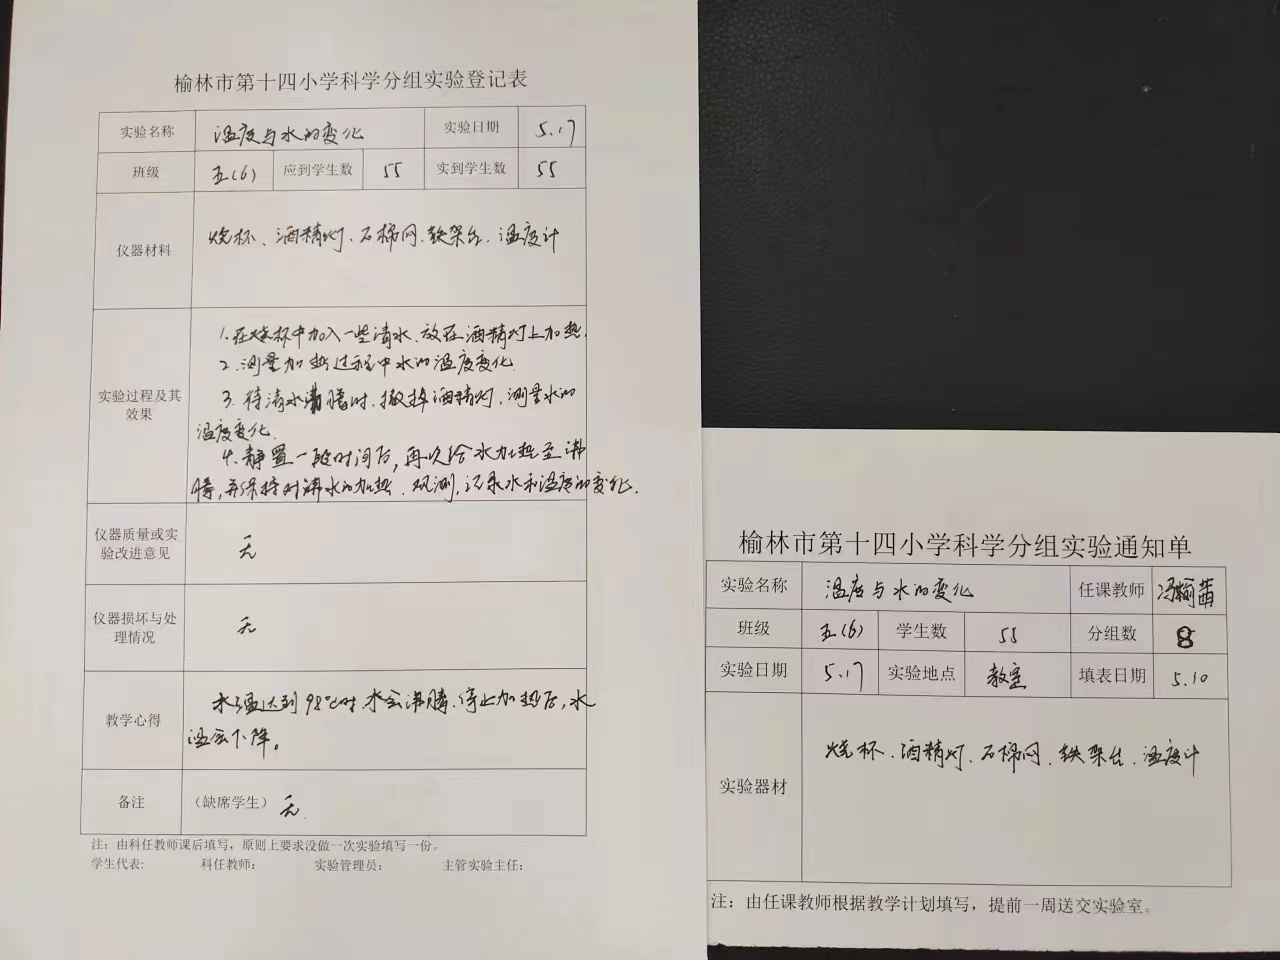 榆林市第十四小学科学分组实验登记表
实验名称 温度与水的变化 实验日期 5.17
班级 五(6) 应到学生数 55 实到学生数 55
仪器材料 烧杯、酒精灯、石棉网、铁架台、温度计
实验过程及其效果
1.在烧杯中加入一些清水、放在酒精灯上加热.
2.测量加热过程中水的温度变化
3.待清水沸腾时.撤掉酒精灯,测量水的
温度变化.
4.静置一段时间后,再次给水加热至沸
腾,并保持对沸水的加热.观测,记录水和温度的变化.
仪器质量或实
验改进意见 无
仪器损坏与处
理情况 无
教学心得 水温达到98℃时水会沸腾.停止加热后,水
温会下降。
备注 (缺席学生) 无.
注:由科任教师课后填写,原则上要求没做一次实验填写一份。
学生代表: 科任教师: 实验管理员: 主管实验主任:
榆林市第十四小学科学分组实验通知单
实验名称 温度与水的变化 任课教师 冯
班级 五(6) 学生数 55 分组数 8
实验日期 5.17 实验地点 教室 填表日期 5.10
实验器材 烧杯、酒精灯、石棉网、铁架台、温度计
注:由任课教师根据教学计划填写,提前一周送交实验室。